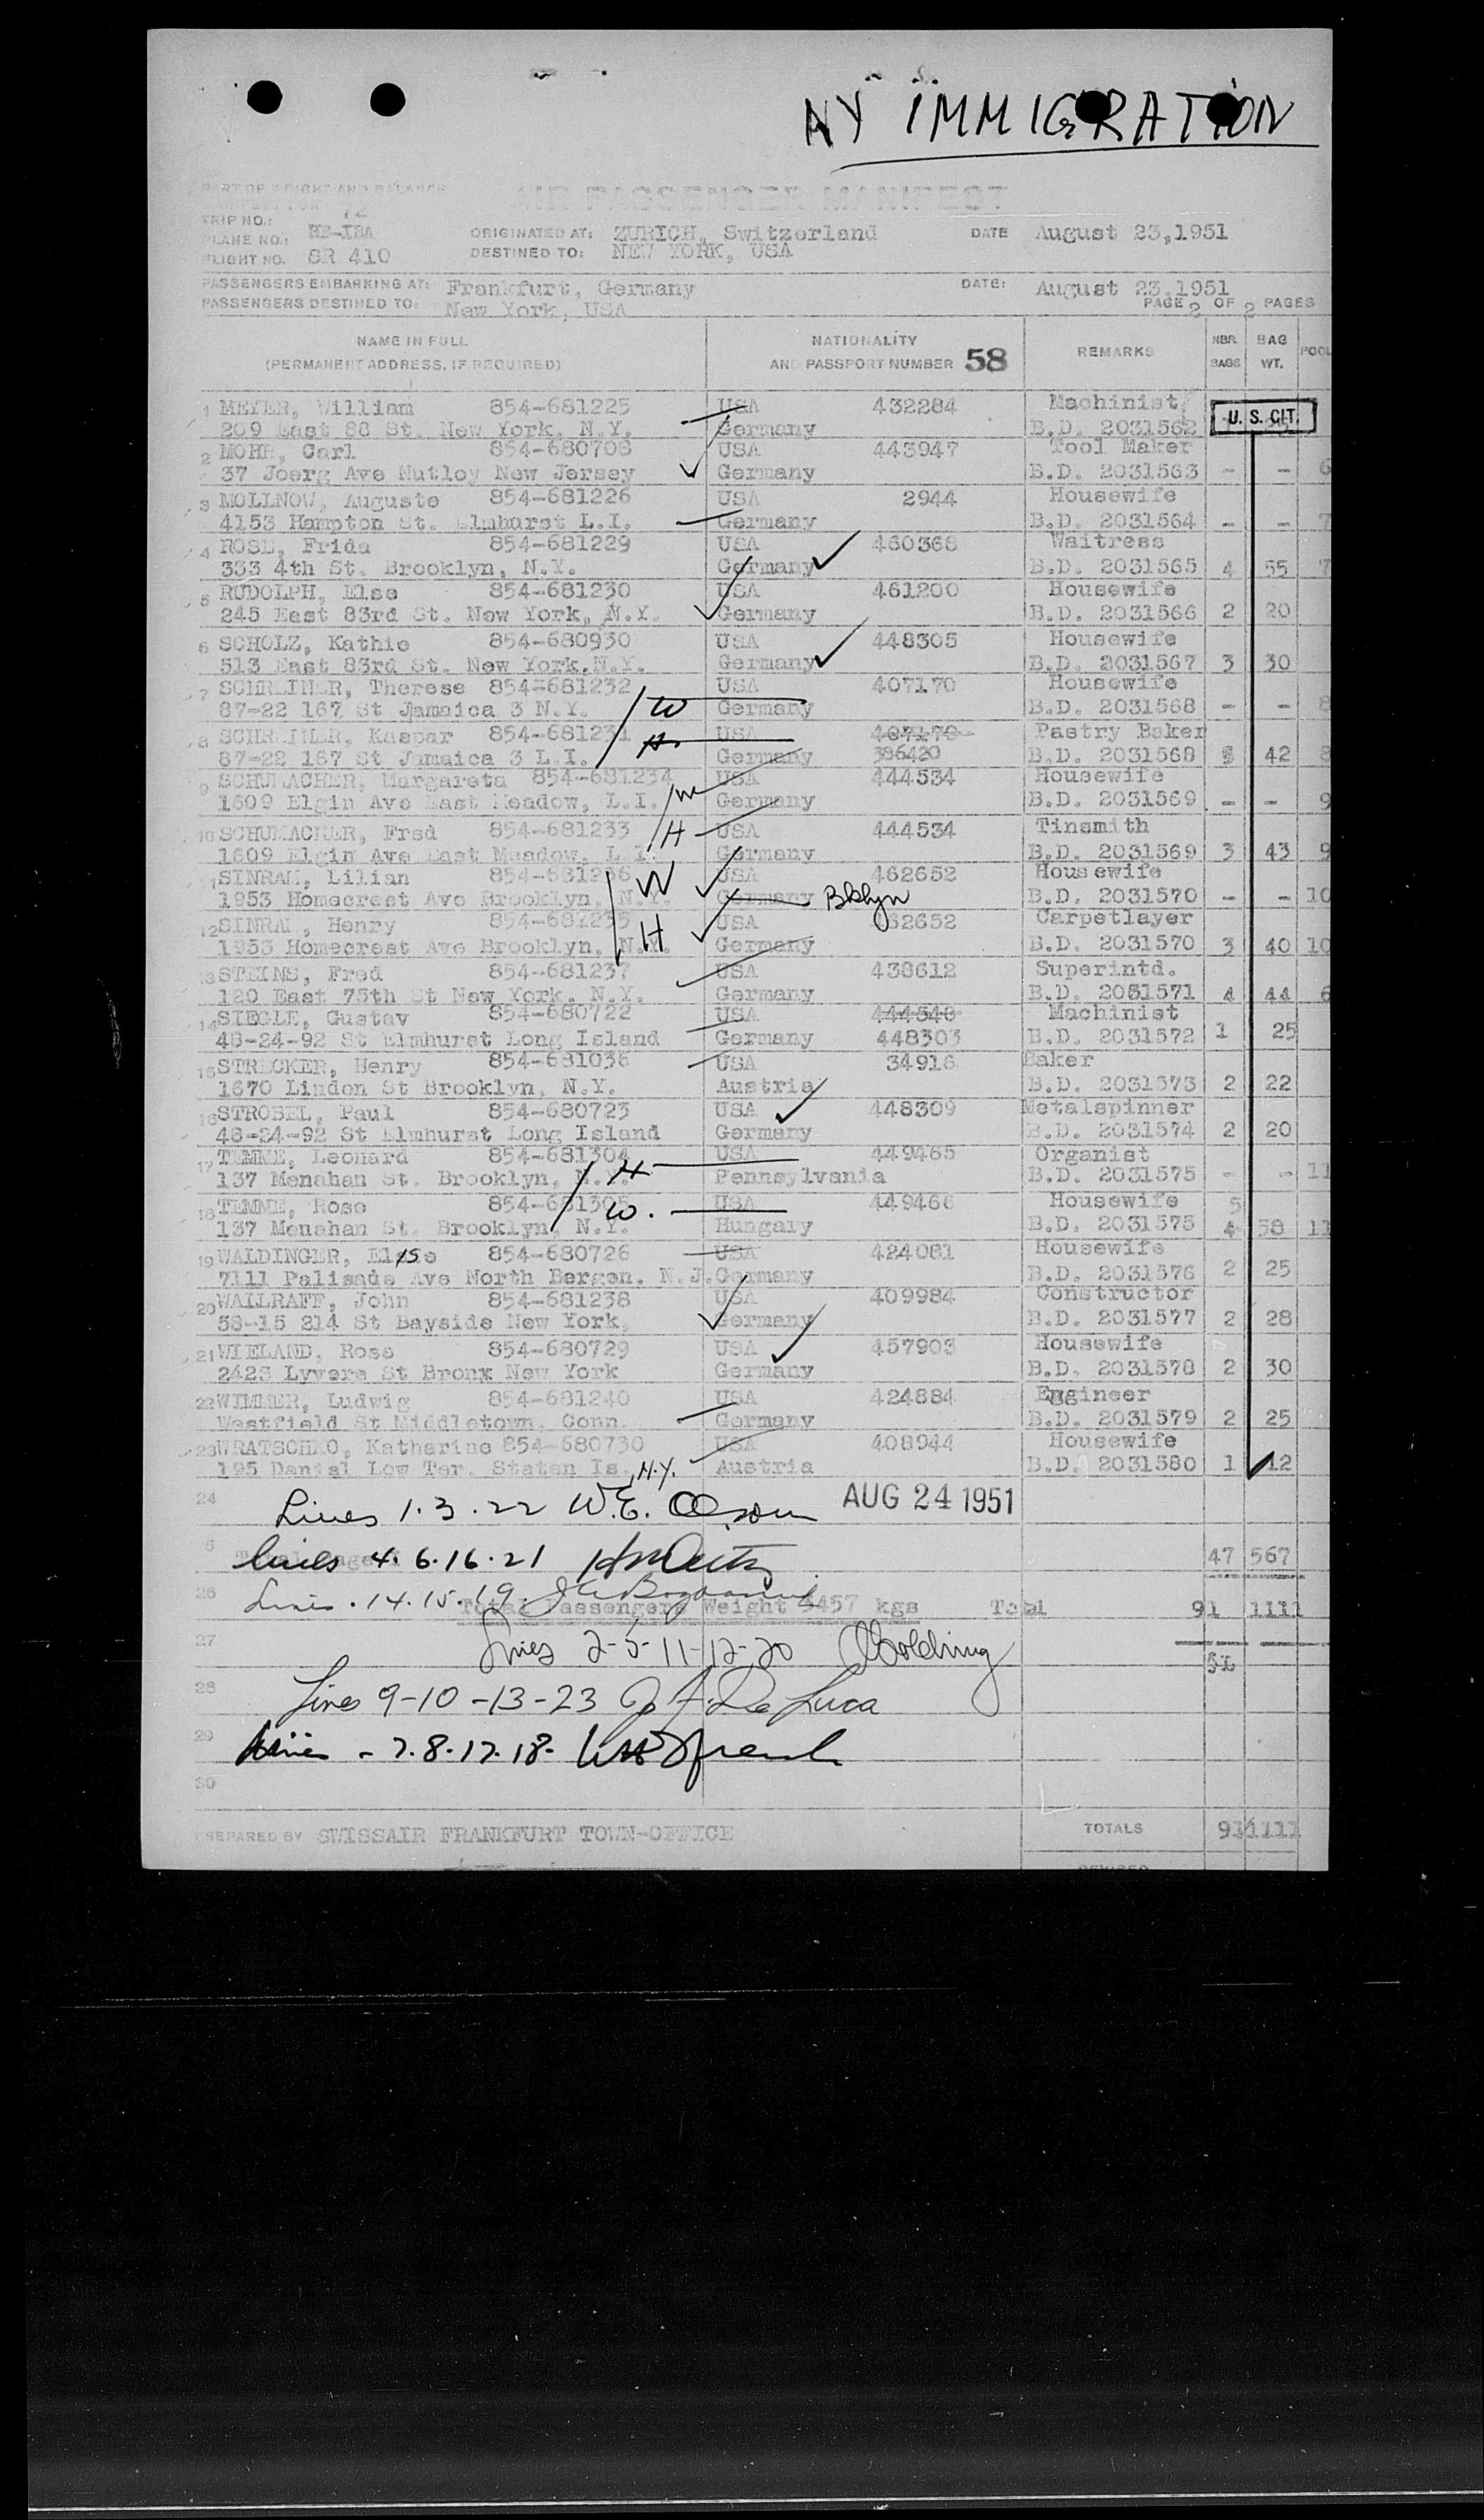 NY IMMIGRATION
PART OF WEIGHT AND BALANCE
AIR PASSENGER MANIFEST
TRIP NO.: 72
PLANE NO.: HB-IBA ORIGINATED AT: ZURICH, Switzerland DATE August 23,1951
FLIGHT NO. SR 410 DESTINED TO: NEW YORK, USA
PASSENGERS EMBARKING AT: Frankfurt, Germany DATE: August 23.1951
PASSENGERS DESTINED TO: New York, USA PAGE 2 OF 2 PAGES
NAME IN FULL NATIONALITY REMARKS NBR BAG POOL
(PERMANENT ADDRESS, IF REQUIRED) AND PASSPORT NUMBER 58 BAGS WT.
1 MEYER, William 854-681225 USA 432284 Machinist
209 East 88 St. New York, N.Y. Germany B.D. 2031562 U. S. CIT.
2 MOHR, Carl 854-680708 USA 443947 Tool Maker
37 Joerg Ave Nutloy New Jersey Germany B.D. 2031563 - - 6
3 MOLLNOW, Auguste 854-681226 USA 2944 Housewife
4153 Hampton St. Elmhurst L.I. Germany B.D. 2031564 - - 7
4 ROSE, Frida 854-681229 USA 460368 Waitress
333 4th St. Brooklyn, N.Y. Germany B.D. 2031565 4 55 7
5 RUDOLPH, Else 854-681230 USA 461200 Housewife
245 East 83rd St. New York, N.Y. Germany B.D. 2031566 2 20
6 SCHOLZ, Kathie 854-680930 USA 448305 Housewife
513 East 83rd St. New York.N.Y. Germany B.D. 2031567 3 30
7 SCHREINER, Therese 854-681232 USA 407170 Housewife
87-22 167 St Jamaica 3 N.Y. W Germany B.D. 2031568 - - 8
8 SCHREINER, Kaspar 854-681231 H. USA 407170 Pastry Baker
87-22 167 St Jamaica 3 L.I. Germany 386420 B.D. 2031568 42 8
9 SCHUMACHER, Margareta 854-681234 USA 444534 Housewife
1609 Elgin Ave East Meadow, L.I. W Germany B.D. 2031569 - - 9
10 SCHUMACHER, Fred 854-681233 H USA 444534 Tinsmith
1609 Elgin Ave East Meadow, L I. Germany B.D. 2031569 3 43 9
11 SINRAM, Lilian 854-681236 W USA 462652 Housewife
1953 Homecrest Ave Brooklyn, N.Y. Germany Bklyn B.D. 2031570 - - 10
12 SINRAM, Henry 854-681235 H USA 62652 Carpetlayer
1953 Homecrest Ave Brooklyn, N.Y. Germany B.D. 2031570 3 40 10
13 STEINS, Fred 854-681237 USA 438612 Superintd.
120 East 75th St New York, N.Y. Germany B.D. 2031571 4 44 6
14 SIEGLE, Gustav 854-680722 USA 444546 Machinist
48-24-92 St Elmhurst Long Island Germany 448303 B.D. 2031572 1 25
15 STRECKER, Henry 854-681036 USA 34916 Baker
1670 Linden St Brooklyn, N.Y. Austria B.D. 2031573 2 22
16 STROBEL, Paul 854-680723 USA 448309 Metalspinner
48-24-92 St Elmhurst Long Island Germany B.D. 2031574 2 20
17 TEMME, Leonard 854-681304 USA 449465 Organist
137 Menahan St. Brooklyn, N.Y. H Pennsylvania B.D. 2031575 - - 11
18 TEMME, Rose 854-681305 USA 449466 Housewife 5
137 Menahan St. Brooklyn, N.Y. W. Hungary B.D. 2031575 4 58 11
19 WALDINGER, Else 854-680726 USA 424081 Housewife
7111 Palisade Ave North Bergen, N.J. Germany B.D. 2031576 2 25
20 WALLRAFF, John 854-681238 USA 409984 Constructor
58-15 214 St Bayside New York, Germany B.D. 2031577 2 28
21 WIELAND, Rose 854-680729 USA 457903 Housewife
2423 Lyvere St Bronx New York Germany B.D. 2031578 2 30
22 WIMMER, Ludwig 854-681240 USA 424884 Engineer
Westfield St Middletown, Conn. Germany B.D. 2031579 2 25
23 WRATSCHKO, Katharine 854-680730 USA 408944 Housewife
195 Danial Low Ter. Staten Is., N.Y. Austria B.D. 2031580 1 12
24 Lines 1.3.22 W.E. Olson AUG 24 1951
lines 4.6.16.21 47 567
26 Lines .14.15.19
Total Passengers Weight 3457 kgs Total 91 1111
27 Lines 2-5-11-12-20
28 Lines 9-10-13-23 J. F. De Luca
29 lines - 7.8.17.18.
30
PREPARED BY SWISSAIR FRANKFURT TOWN-OFFICE TOTALS 91 1111